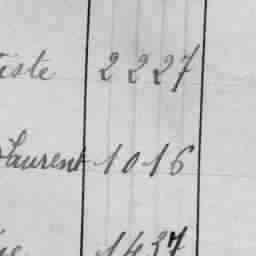 iste 2227
Laurent 1016
ie 1437